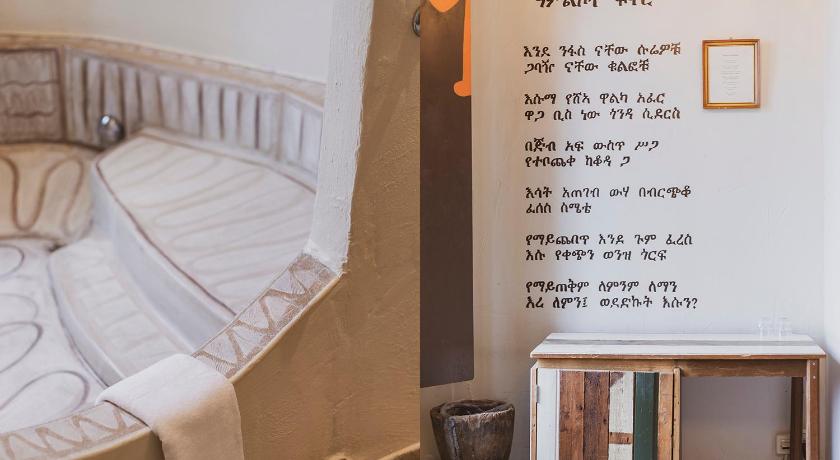 እንደ ንፋስ ናቸው ሱሬዎቹ
ጋባዥ ናቸው ቁልፎቹ
እሱማ የሸአ ዋልካ አፈር
ዋጋ ቢስ ነው ጎንዳ ሲደርስ
በጅብ አፍ ውስጥ ሥጋ
የተቦጨቀ ከቆዳ ጋ
እሳት አጠገብ ውሃ በብርጭቆ
ፈሰስ ስሜቴ
የማይጨበጥ እንደ ጉም ፈረስ
እሱ የቀጭን ወንዝ ጎርፍ
የማይጠቅም ለምንም ለማን
እረ ለምን፤ ወደድኩት እሱን?